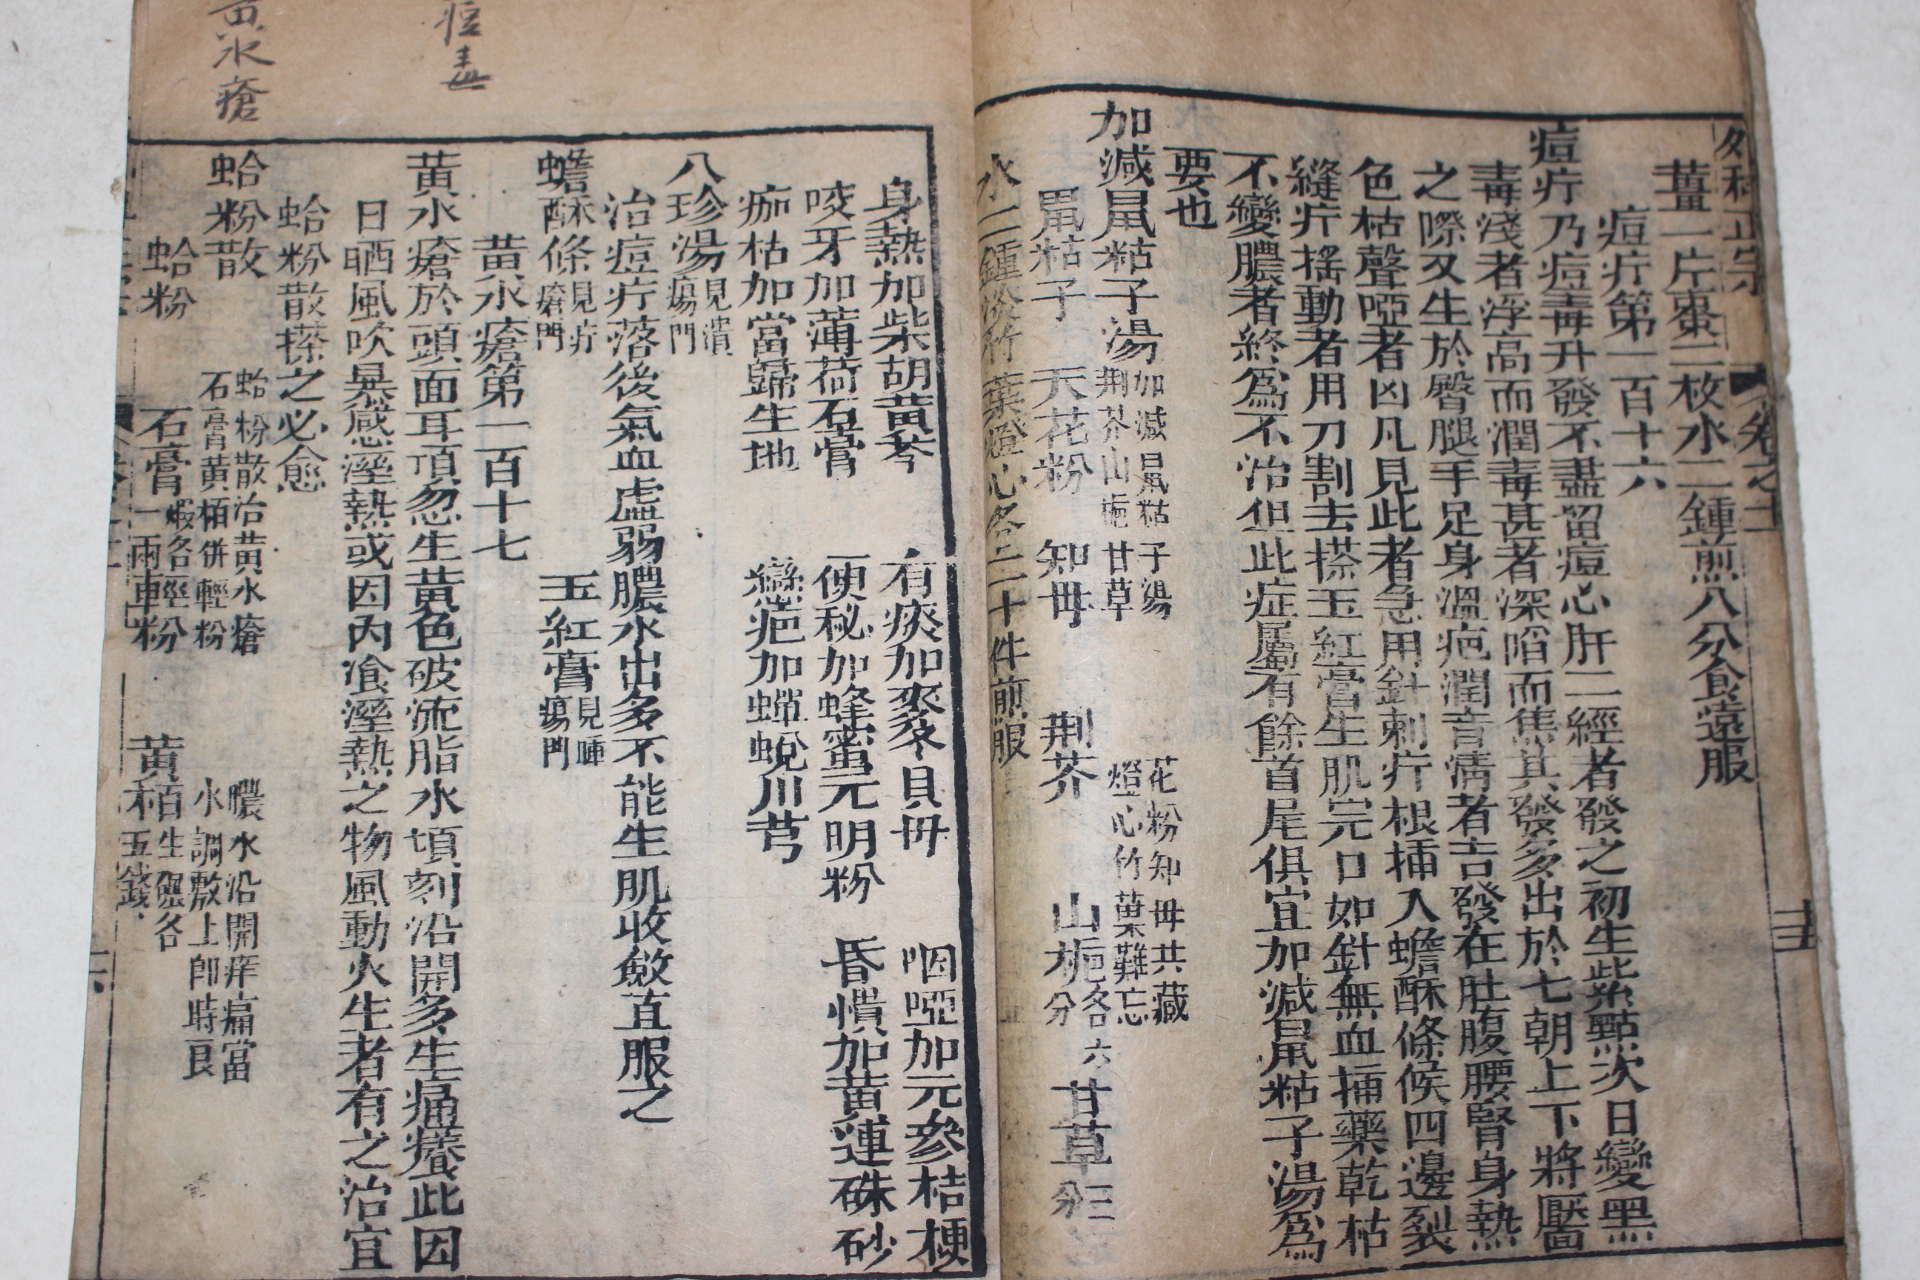 外科正宗 卷之十二
薑一片棗二枚水二鍾煎八分食遠服
痘疔第一百十六
痘疔乃痘毒升發不盡留痘心肝二經者發之初生紫點次日變黑
毒淺者浮高而潤毒甚者深陷而焦其發多出於七朝上下將靨
之際又生於臀腿手足身溫疤潤音清者吉發在肚腹腰腎身熱
色枯聲啞者凶凡見此者急用針刺疔根插入蟾酥條候四邊裂
縫疔搖動者用刀割去搽玉紅膏生肌完口如針無血插藥乾枯
不變膿者終爲不治但此症屬有餘首尾俱宜加減鼠粘子湯爲
要也
加減鼠粘子湯
加減鼠粘子湯 花粉知毋共藏
荆芥山梔甘草 燈心竹葉難忘
鼠粘子 天花粉 知毋 荆芥 山梔各六分 甘草三分
水二鍾淡竹葉燈心各二十件煎服
身熱加柴胡黃芩 有痰加麥冬貝毋 咽啞加元參桔梗
咬牙加薄荷石膏 便秘加蜂蜜元明粉 昏憒加黃連硃砂
痂枯加當歸生地 戀疤加蟬蛻川芎
八珍湯見潰瘍門
治痘疔落後氣血虛弱膿水出多不能生肌收斂直服之
蟾酥條見疔瘡門 玉紅膏見腫瘍門
黃水瘡第一百十七
黃水瘡於頭面耳項忽生黃色破流脂水頃刻沿開多生痛癢此因
日晒風吹暴感溼熱或因內飡溼熱之物風動火生者有之治宜
蛤粉散搽之必愈
蛤粉散
蛤粉散治黃水瘡 膿水沿開痒痛當
石膏黃栢併輕粉 水調敷上即時良
蛤粉 石膏煅各一兩 輕粉 黃栢生硏各五錢
痘毒
黃水瘡